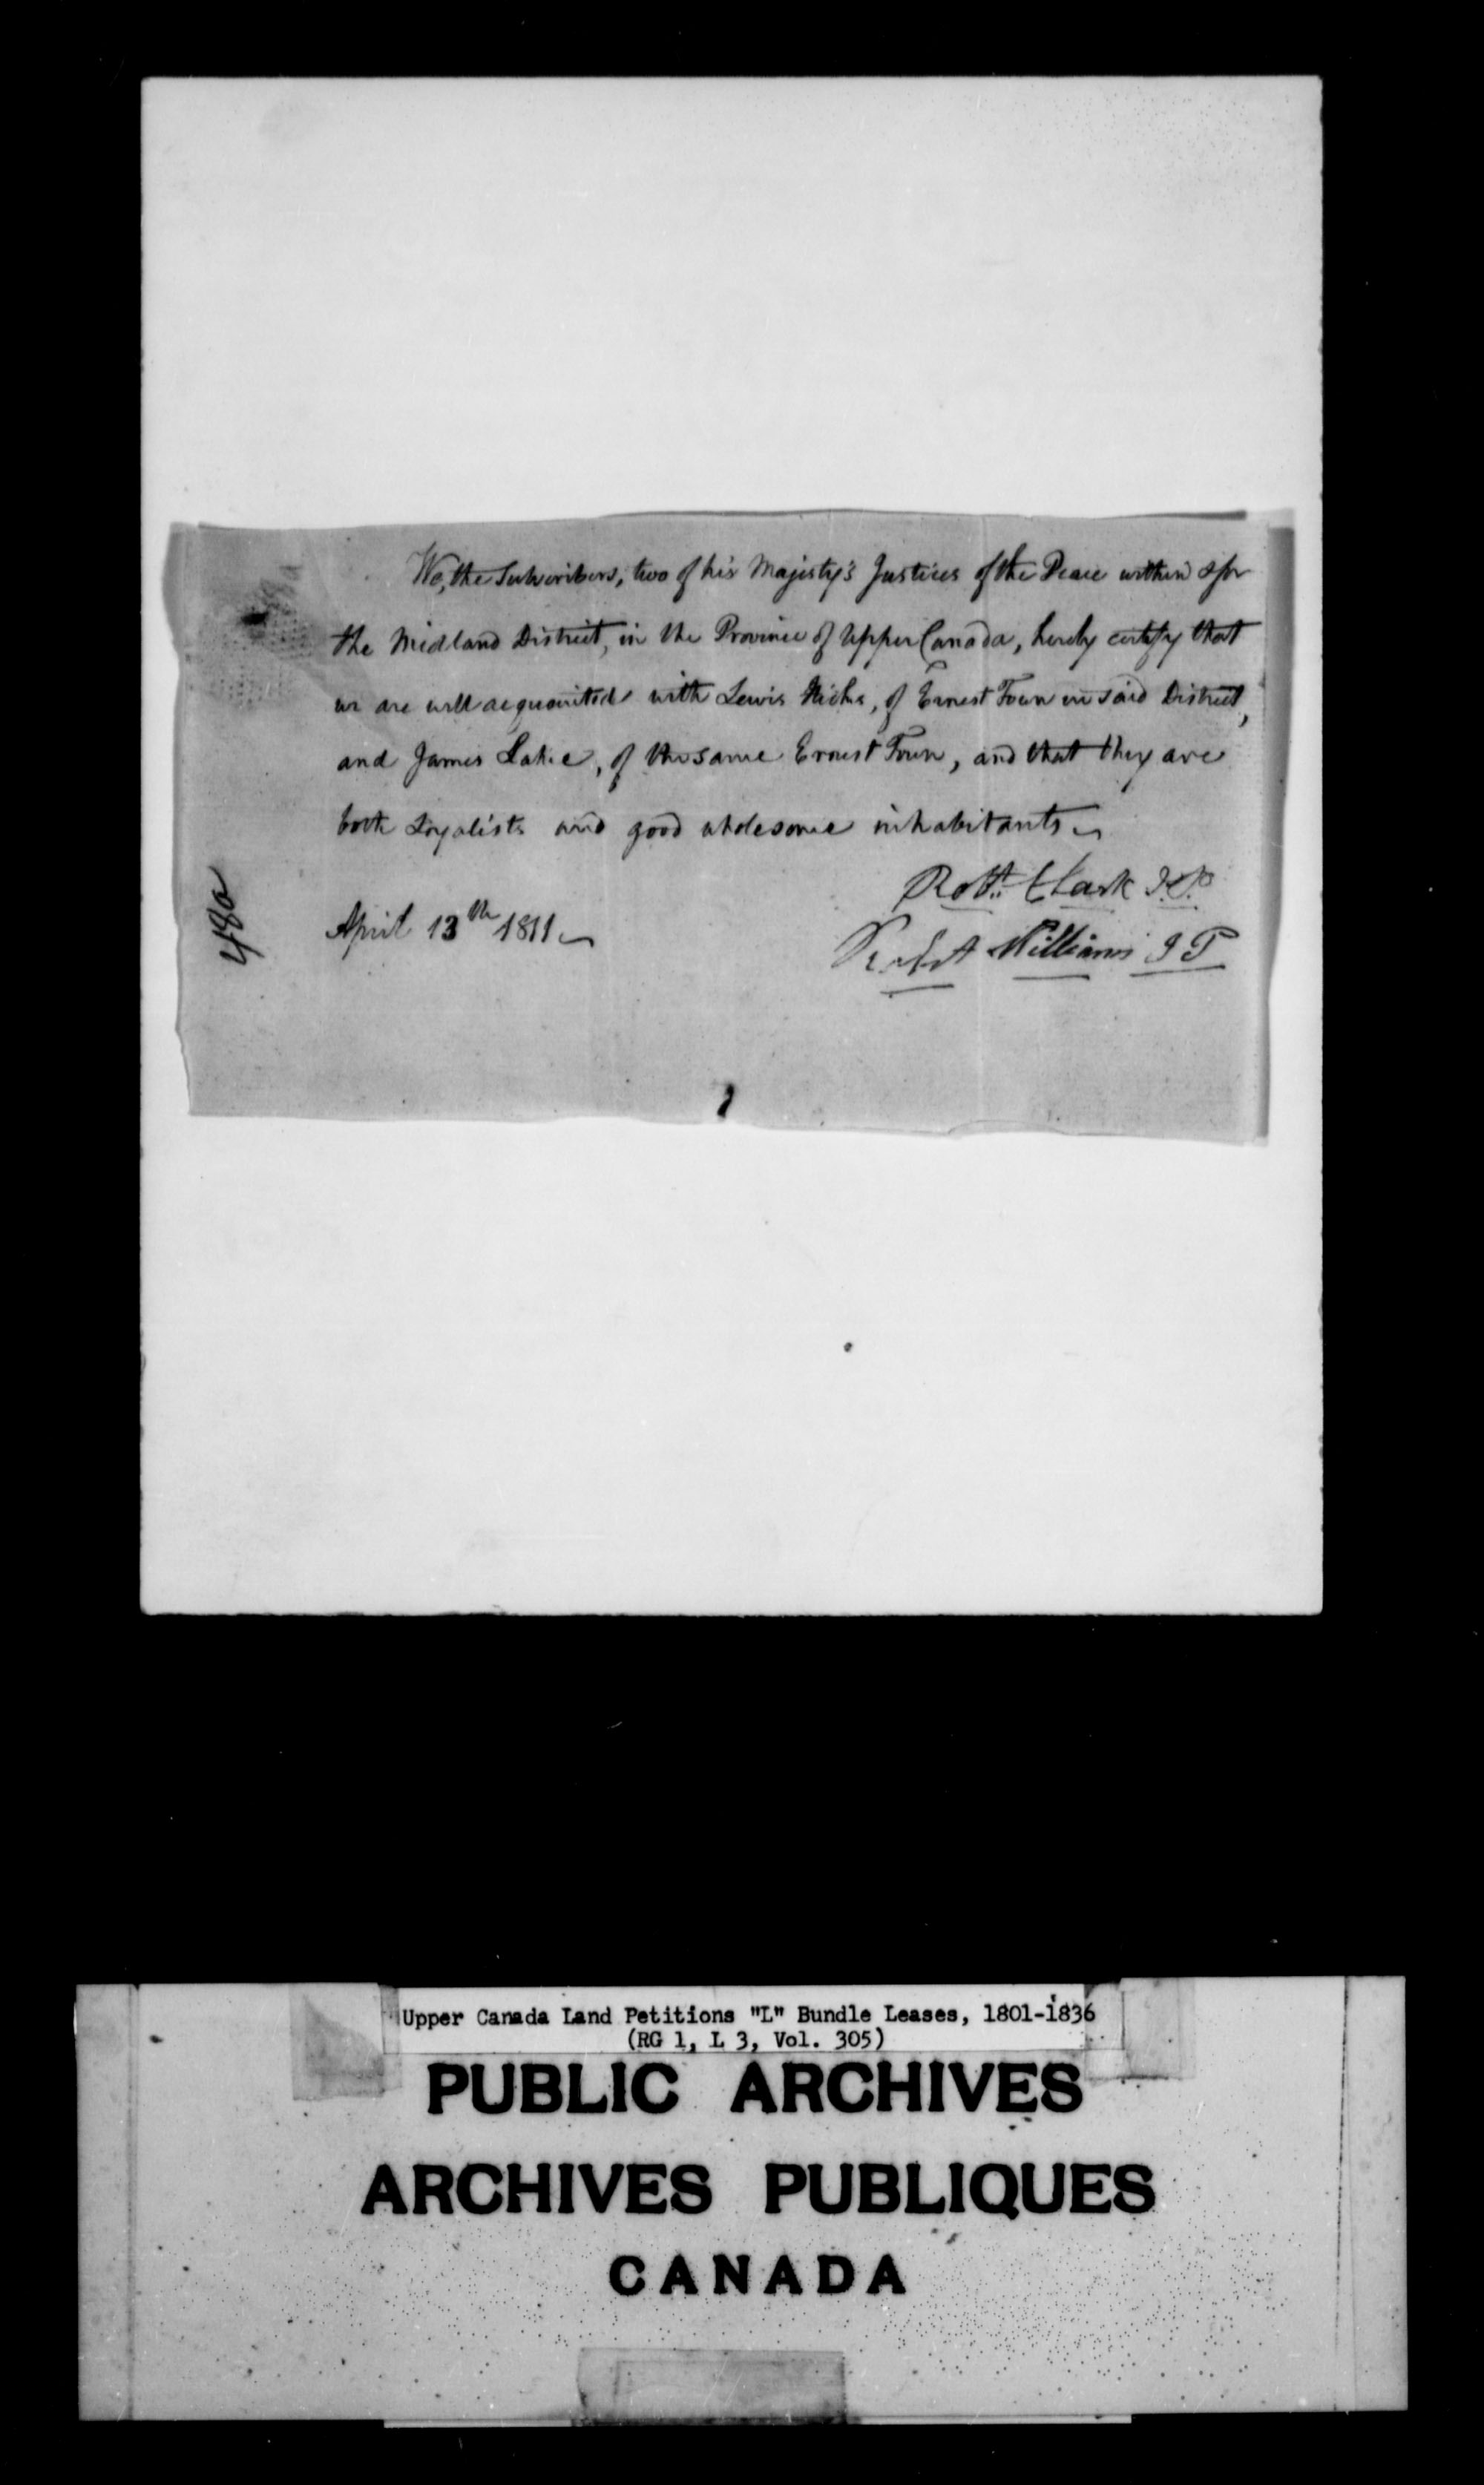 We, the Subscribers, two of his Majesty's Justices of the Peace within & for
the Midland District, in the Province of Upper Canada, hereby certify that
we are well acquainted with Lewis Hicks, of Ernest Town in said District,
and James Lake, of the same Ernest Town, and that they are
both Loyalists and good wholesome inhabitants
Robt. Clark J.P.
April 13th 1811
Robert Williams J P
48a
Upper Canada Land Petitions "L" Bundle Leases, 1801-1836
(RG 1, L 3, Vol. 305)
PUBLIC ARCHIVES
ARCHIVES PUBLIQUES
CANADA